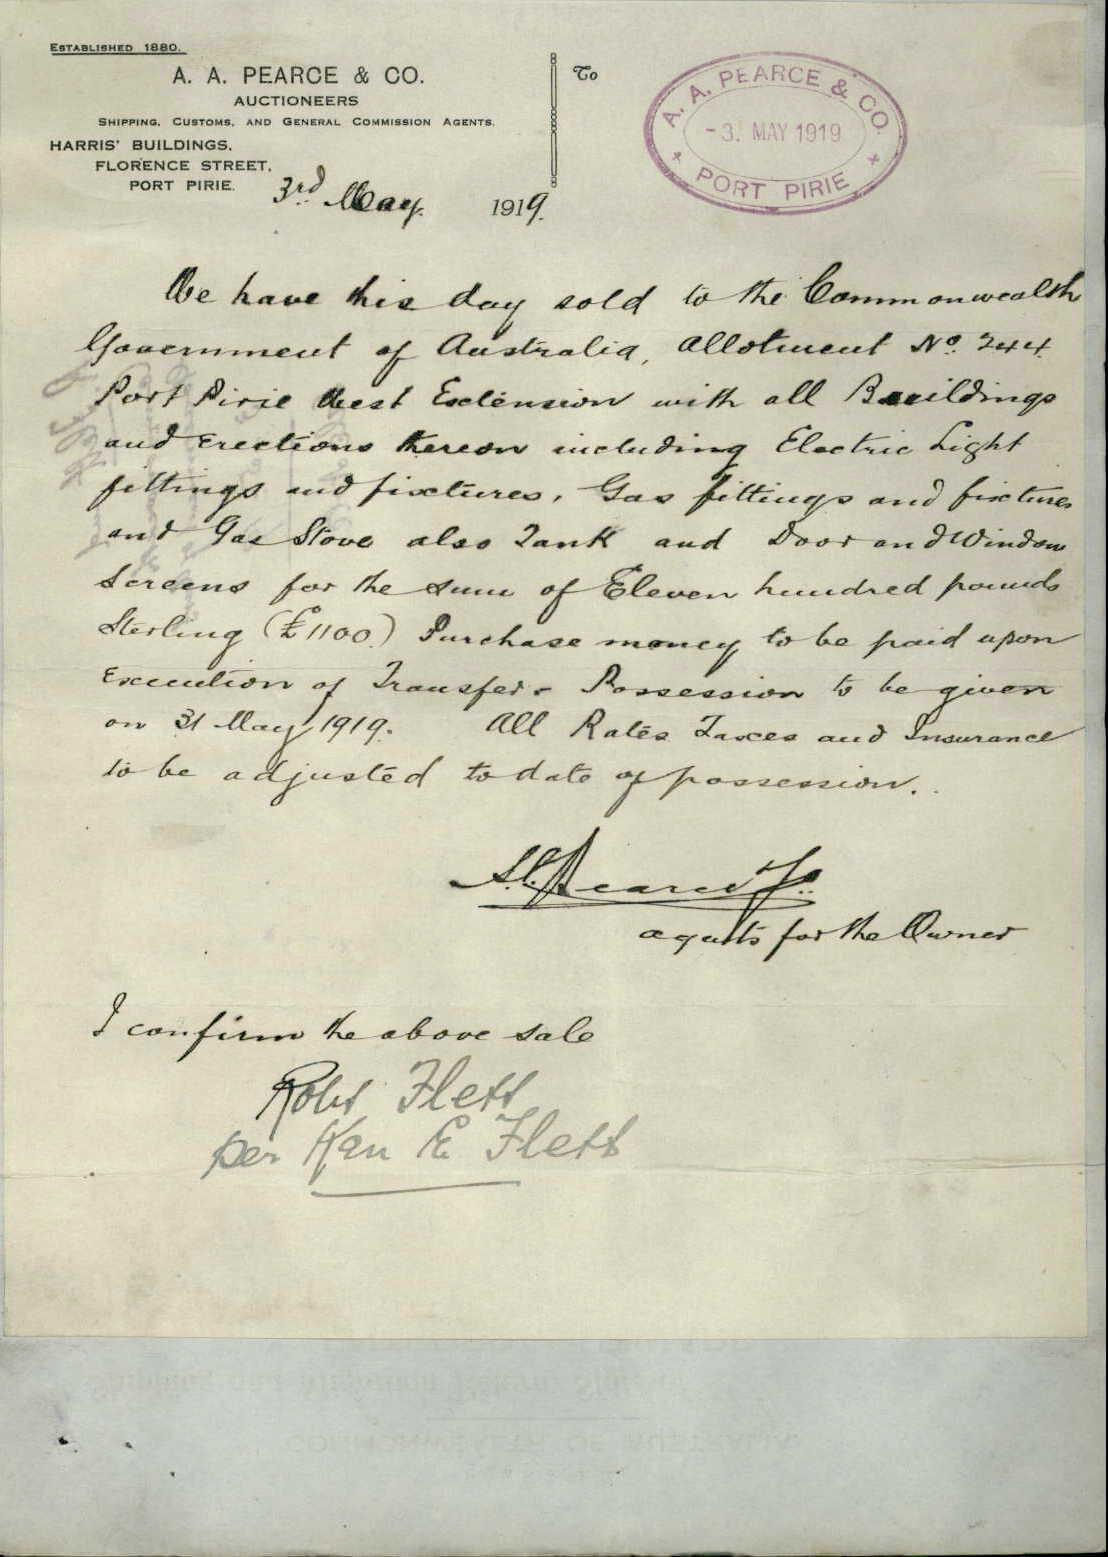 ESTABLISHED 1880.
A. A. PEARCE & CO.
AUCTIONEERS
SHIPPING, CUSTOMS, AND GENERAL COMMISSION AGENTS.
HARRIS' BUILDINGS,
FLORENCE STREET,
PORT PIRIE.
3rd May 1919.
To
A. A. PEARCE & CO.
-3. MAY 1919
PORT PIRIE
We have this day sold to the Commonwealth
Government of Australia, Allotment No. 244
Port Pirie West Extension with all Buildings
and Erections thereon including Electric Light
fittings and fixtures, Gas fittings and fixtures
and Gas Stove also Tank and Door and Window
Screens for the sum of Eleven hundred pounds
Sterling (£1100.) Purchase money to be paid upon
Execution of Transfer. Possession to be given
on 31 May 1919. All Rates Taxes and Insurance
to be adjusted to date of possession.
Pearce & Co.
agents for the Owner
I confirm the above sale
Robt Flett
per E Flett